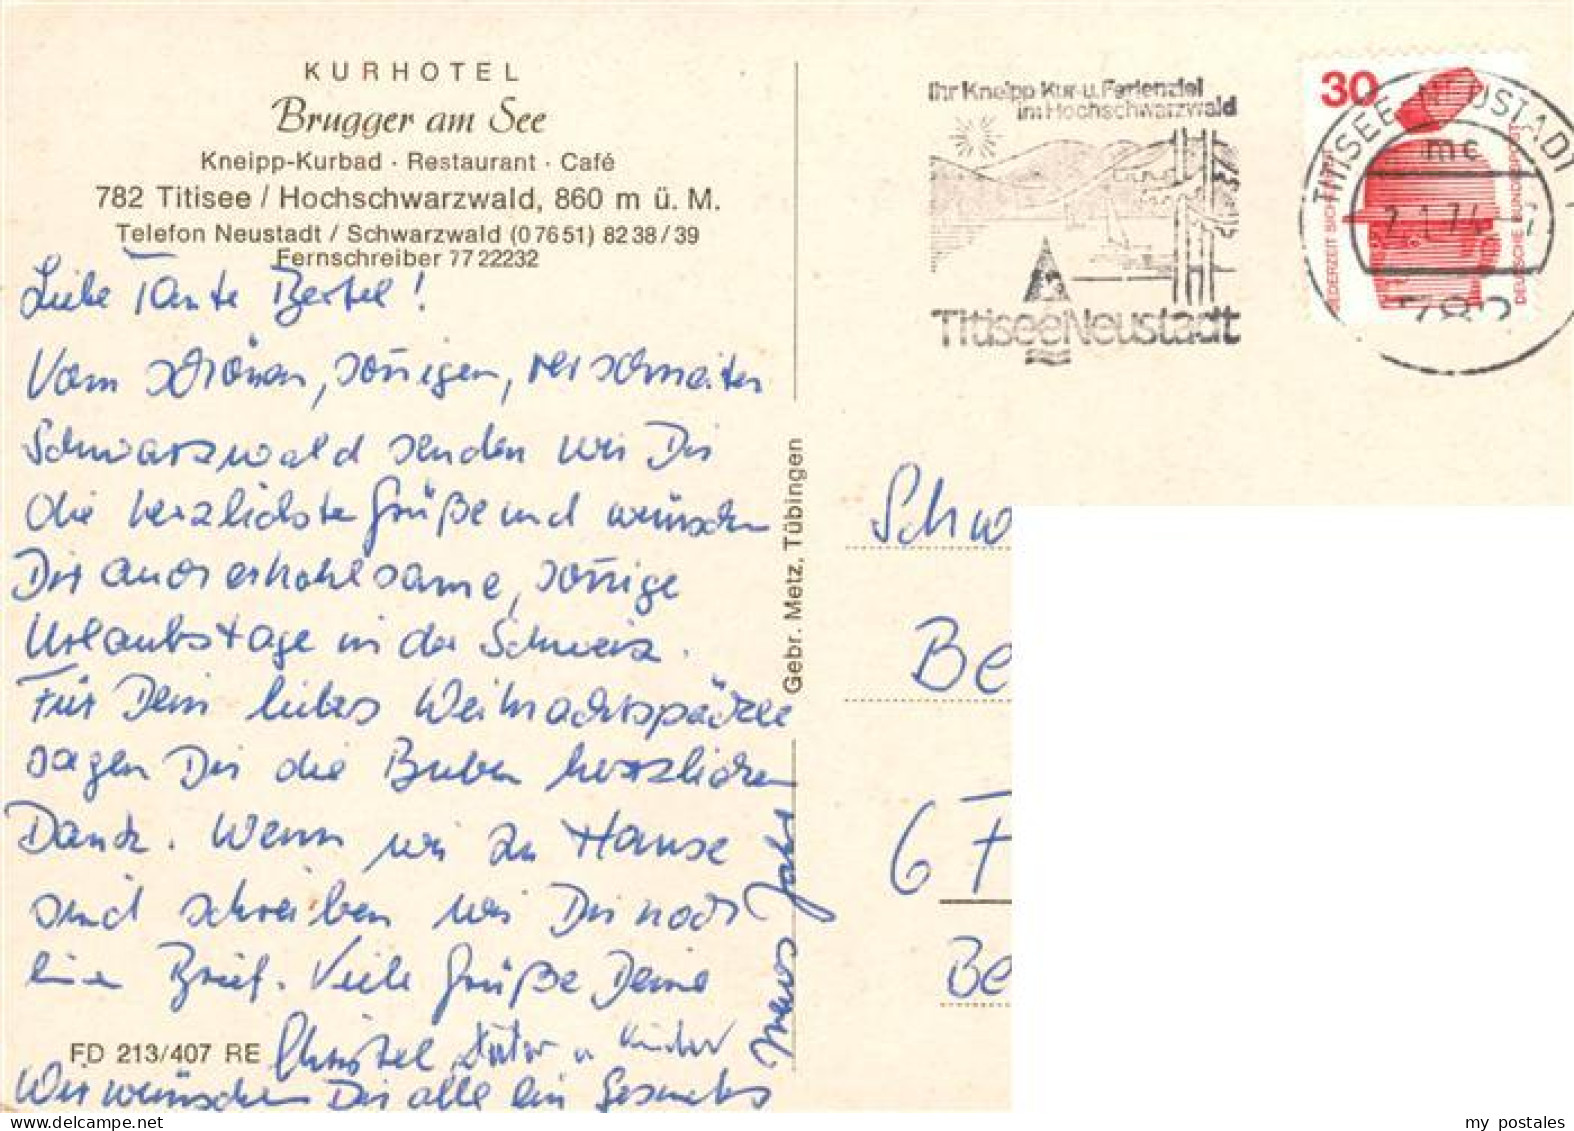 KURHOTEL
Brugger am See
Kneipp-Kurbad · Restaurant · Café
782 Titisee / Hochschwarzwald, 860 m ü. M.
Telefon Neustadt / Schwarzwald (0 76 51) 82 38 / 39
Fernschreiber 77 22232
Liebe Tante Bertel!
Vom schönen, sonnigen, verschneiten
Schwarzwald senden wir Dir
die herzlichsten Grüße und wünschen
Dir auch erholsame, sonnige
Urlaubstage in der Schweiz.
Für Dein liebes Weihnachtspäckle
sagen Dir die Buben herzlichen
Dank. Wenn wir zu Hause
sind schreiben wir Dir noch
einen Brief. Viele Grüße Deine
Christel, Dieter u Kinder
Wir wünschen Dir alle ein Gesundes
neues Jahr
FD 213/407 RE
Gebr. Metz, Tübingen
Ihr Kneipp-Kur-u. Ferienziel
im Hochschwarzwald
Titisee-Neustadt
30
JEDERZEIT SICHERHEIT
DEUTSCHE BUNDESPOST
TITISEE-NEUSTADT 1
mc
2.1.74-7
782
Schw
Be
6 F
Be
my postales